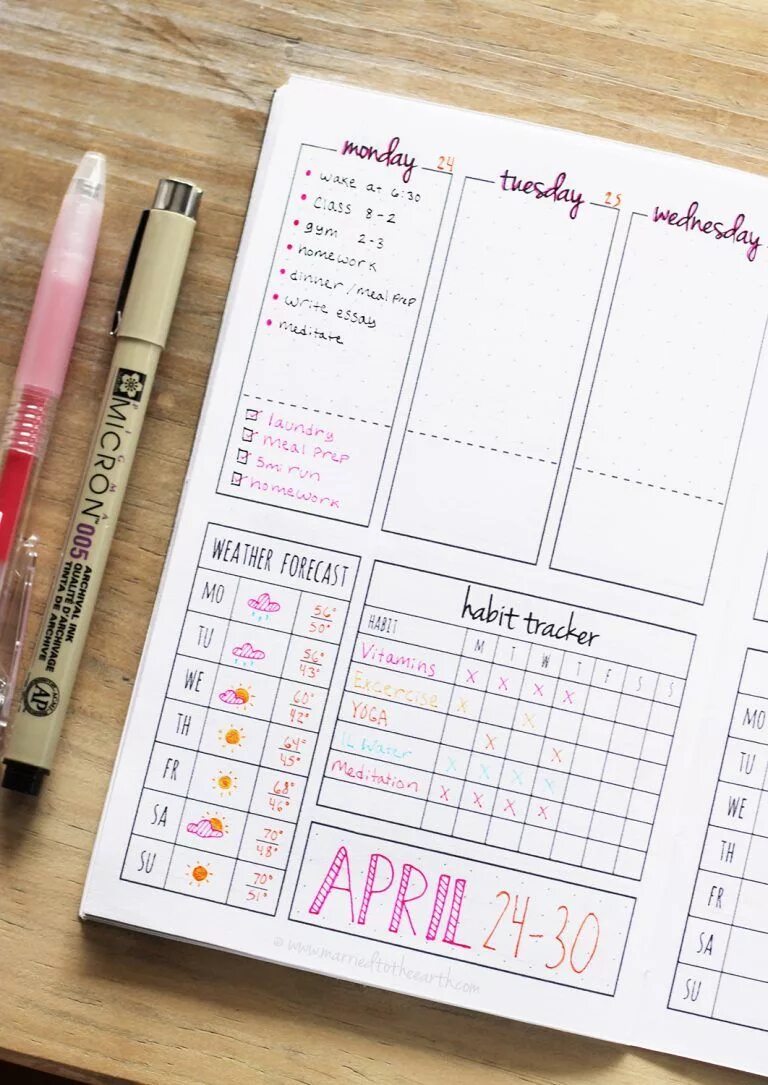 monday 24
wake at 6:30
class 8-2
gym 2-3
homework
dinner/meal prep
write essay
meditate
laundry
meal prep
5mi run
homework
tuesday 25
wednesday
WEATHER FORECAST
MO 56° 50°
TU 56° 43°
WE 60° 42°
TH 64° 45°
FR 68° 46°
SA 70° 48°
SU 70° 51°
habit tracker
HABIT M T W T F S S
Vitamins X X X X
Excercise X X
YOGA X X
1L Water X X X X
Meditation X X X X
APRIL 24-30
MO
TU
WE
TH
FR
SA
SU
© www.marriedtotheearth.com
PIGMA
MICRON™ 005
ARCHIVAL INK
QUALITÉ D'ARCHIVE
TINTA DE ARCHIVO
AP